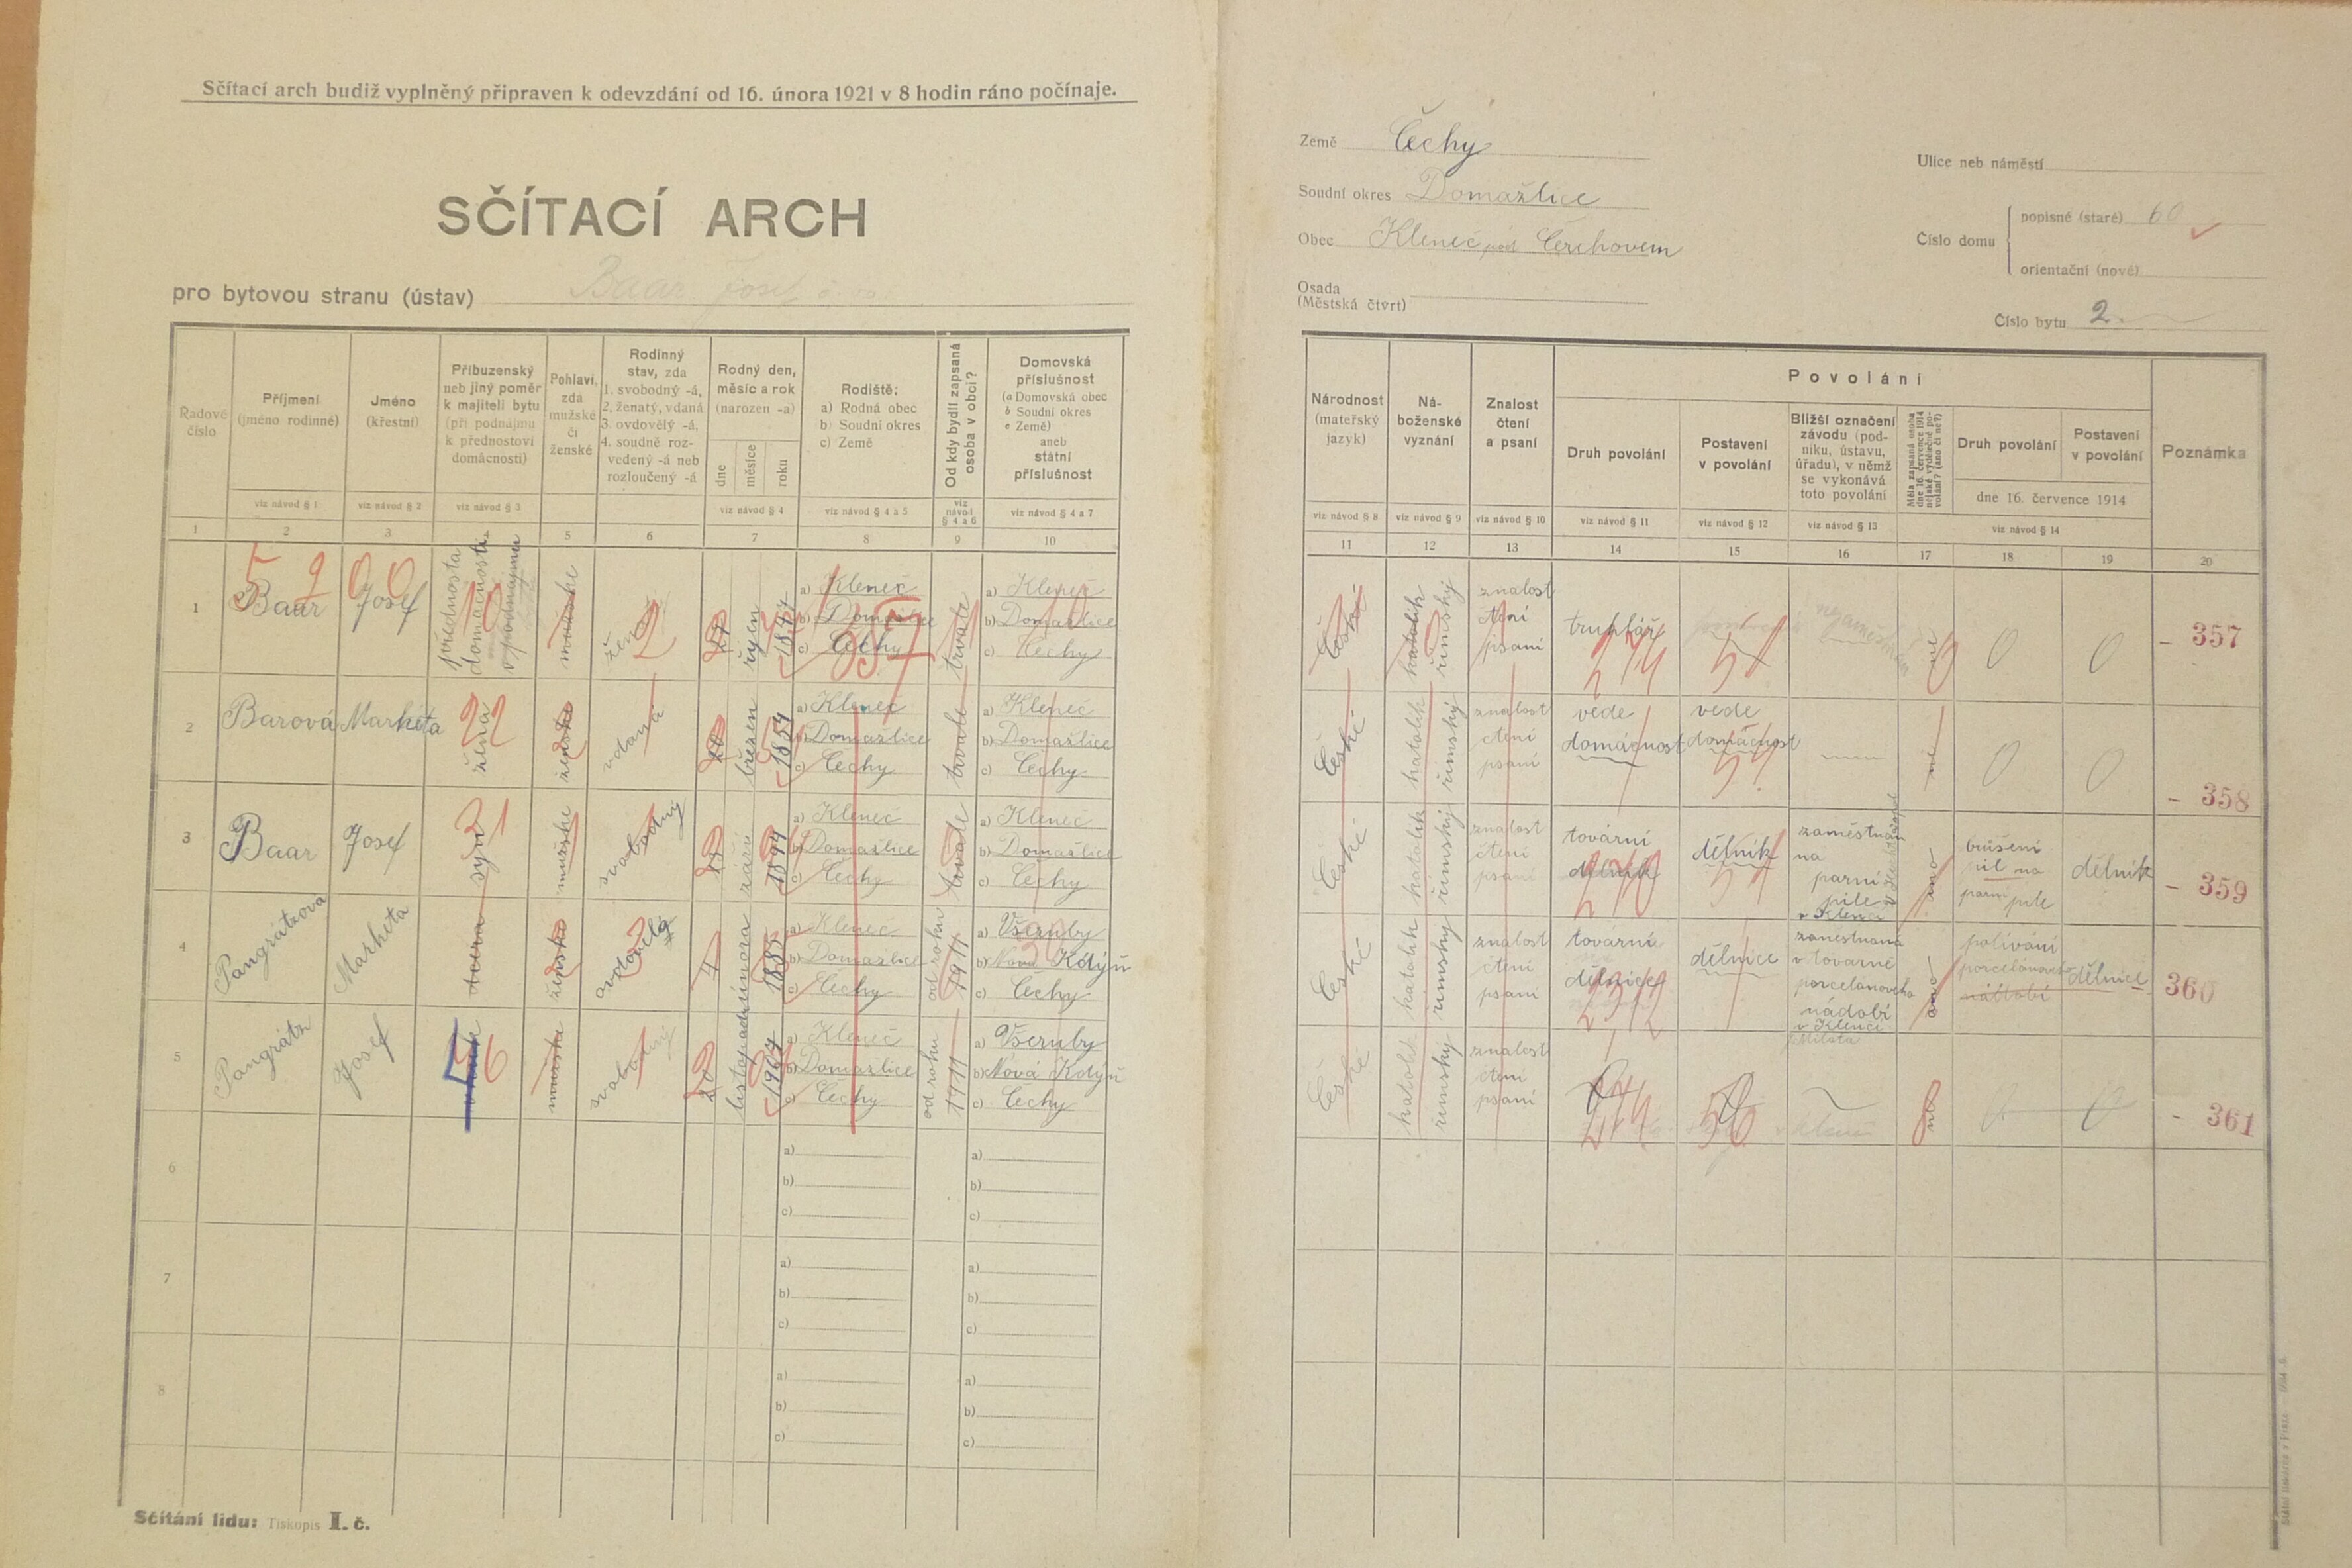 Sčítací arch budiž vyplněný připraven k odevzdání od 16. února 1921 v 8 hodin ráno počínaje.
SČÍTACÍ ARCH
pro bytovou stranu (ústav) Baar Josef
Země Čechy
Soudní okres Domažlice
Obec Kleneč pod Čerchovem
Osada
(Městská čtvrt)
Ulice neb náměstí
Číslo domu
popisné (staré) 60
orientační (nové)
Číslo bytu 2.
Řadové číslo
Příjmení (jméno rodinné)
Jméno (křestní)
Příbuzenský neb jiný poměr k majiteli bytu (při podnájmu k přednostovi domácnosti)
Pohlaví, zda mužské či ženské
Rodinný stav, zda 1. svobodný -á, 2. ženatý, vdaná 3. ovdovělý -á, 4. soudně rozvedený -á neb rozloučený -á
Rodný den, měsíc a rok (narozen -a)
dne měsíce roku
Rodiště: a) Rodná obec b) Soudní okres c) Země
Od kdy bydlí zapsaná osoba v obci?
Domovská příslušnost (a Domovská obec b Soudní okres c Země) aneb státní příslušnost
viz návod § 1 viz návod § 2 viz návod § 3 viz návod § 4 viz návod § 4 a 5 viz návod § 4 a 6 viz návod § 4 a 7
1 2 3 4 5 6 7 8 9 10
Národnost (mateřský jazyk)
Náboženské vyznání
Znalost čtení a psaní
Povolání
Druh povolání
Postavení v povolání
Bližší označení závodu (podniku, ústavu, úřadu), v němž se vykonává toto povolání
Měla zapsaná osoba dne 16. července 1914 nějaké výdělečné povolání? (ano či ne?)
Druh povolání
Postavení v povolání
dne 16. července 1914
Poznámka
viz návod § 8 viz návod § 9 viz návod § 10 viz návod § 11 viz návod § 12 viz návod § 13 viz návod § 14
11 12 13 14 15 16 17 18 19 20
1 Baar Josef přednosta domácnosti v podnájmu mužské říjen
a) Kleneč b) Domažlice c) Čechy trvale a) Kleneč b) Domažlice c) Čechy
české katolík římský znalost čtení psaní truhlář ne 0 0 - 357
2 Barová Markéta žena ženské vdaná 20 březen 1854
a) Kleneč b) Domažlice c) Čechy trvale a) Kleneč b) Domažlice c) Čechy
české katolík římský znalost čtení psaní vede domácnost vede domácnost ne 0 0 - 358
3 Baar Josef syn mužské svobodný září 1894
a) Kleneč b) Domažlice c) Čechy trvale a) Kleneč b) Domažlice c) Čechy
české katolík římský znalost čtení psaní tovární dělník dělník zaměstnán na parní pile v Klenči ano broušení pil na parní pile dělník - 359
4 Pangrátzová Markéta dcera ženské ovdovělá 4 února 1885
a) Kleneč b) Domažlice c) Čechy od roku 1911 a) Všeruby b) Nová Kdýň c) Čechy
české katolík římský znalost čtení psaní tovární dělnice dělnice zaměstnaná v továrně porcelanového nádobí v Klenči ano polívání porcelánového nádobí dělnice 360
5 Pangrátz Josef vnuk svobodný 20 listopadu 1907
a) Kleneč b) Domažlice c) Čechy od roku 1911 a) Všeruby b) Nová Kdýň c) Čechy
české katolík římský znalost čtení psaní ne 0 0 - 361
6 a) b) c) a) b) c)
7 a) b) c) a) b) c)
8 a) b) c) a) b) c)
Sčítání lidu: Tiskopis I. č.